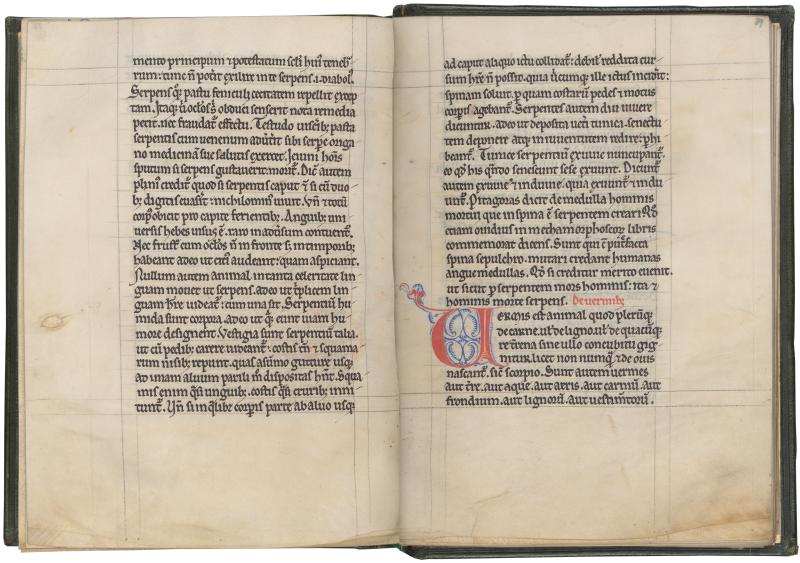 mento principum ⁊ potestatum scłi hui᷒ teneb᷑
rum: tunc n̄ pot̄it exilire in te serpens .i. diabol᷒.
Serpens q̨ꝫ pastu feniculi cecitatem repellit excep
tam. Itaqꝫ ū oclos sibi obduci senserit nota remedia
petit. nec fraudat᷑ effectu. Testudo visceribꝫ pasta
serpentis cum venenum aduertit sibi serpe origa
no medicinā sue salutis exercet. Ieiuni hoīs
sputum si serpens gustauerit: morit᷑. Dic̄ autem
plini᷒ credit᷑ quod si serpentis caput ⁊ si cū duo
bꝫ digitis euaserit: nichilomin᷒ uiuit. Vn̄ ⁊ totū
corp᷒ obicit pro capite ferientibꝫ. Anguibꝫ uni
uersis hebes uisus ē. raro in aduersum contuent᷑.
Nec frustra cum oclos n̄ in fronte sꝫ in timporibꝫ
habeant adeo ut citi᷒ audeant: quam aspiciant.
Nullum autem animal in tanta celeritate lin
guam mouet ut serpens. adeo ut t᷑plicem lin
guam h̄re uideat᷑: cum una sit. Serpentiū hu
mida sunt corpora. adeo ut q̨ᷓ eunt uiam hu
more designent. Vestigia sunt serpentiū talia.
ut cū pedibꝫ carere uideant᷑: costis tn̄ ⁊ squama
rum nisibꝫ repunt. quas a sūmo guture usqꝫ
ad imam aluum parili m̊ dispositas hn̄t. Squa
mis enim q̊si unguibꝫ: costis q̊si cruribꝫ inni
tunt᷑. Vn̄ si in q̊libꝫ corꝑis parte ab aluo usqꝫ
ad caput aliquo ictu collidat᷑: debil᷒ reddita cur
sum h̄re n̄ possit. quia ubicumqꝫ ille ictus inciderit:
spinam soluit. ꝑ quam costarū pedes ⁊ motus
corꝑis agebant᷑. Serpentes autem diu uiuere
dicuntur. adeo ut deposita ueteri tunica. senectu
tem deponere atqꝫ in iuuentutem redire: ꝑhi
beant᷑. Tunice serpentiū exuuie nuncupant᷑.
eo qd̄ his q̄ndo senescunt sese exuunt. Dicunt᷑
autem exuuie ⁊ induuie. quia exuunt᷑ ⁊ indu
unt᷑. Pitagoras dicit de medulla hominis
mortui que in spina ē serpentem creari. Qd̄
etiam ouidius in methamorphoseoꝝ libris
commemorat dicens. Sunt qui ē putrefacta
spina sepulchro. mutari credant humanas
angue medullas. Qd̄ si creditur merito euenit.
ut sicut ꝑ serpentem mors hominis: ita ⁊
hominis morte serpens. De uermibꝫ
Uermis est animal quod pler̄uqꝫ
de carne. ul᷑ de ligno. ul᷑ de quacūqꝫ
re t᷑rena sine ullo concubitu gig
nitur. licet non numq̄ ⁊ de ouis
nascant᷑. sic̄ scorpio. Sunt autem uermes
aut t᷑re. aut aque. aut aeris. aut carniū. aut
frondium. aut lignorū. aut uestim̄torū.